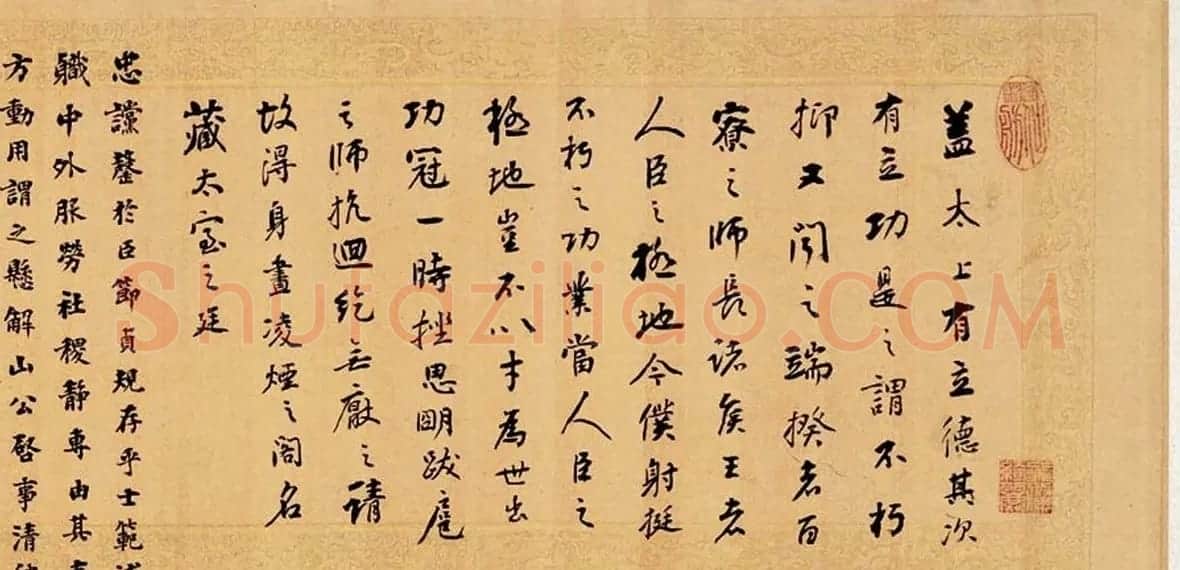 蓋太上有立德其次
有立功是之謂不朽
抑又聞之端揆者百
寮之師長諸侯王者
人臣之極地今僕射挺
不朽之功業當人臣之
極地豈不以才為世出
功冠一時挫思明跋扈
之師抗迴紇無厭之請
故得身畫凌煙之閣名
藏太室之廷
忠讜罄於臣節貞規存乎士範
軄中外服勞社稷靜專由其
方動用謂之懸解山公啓事清
Shufaziliao.COM